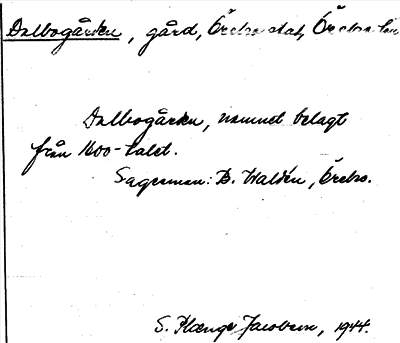 Dalbogården, gård, Örebro stad, Örebro län
Dalbogården, namnet belagt
från 1600-talet.
Sagesman: B. Waldén, Örebro.
S. Plænge Jacobson, 1944.